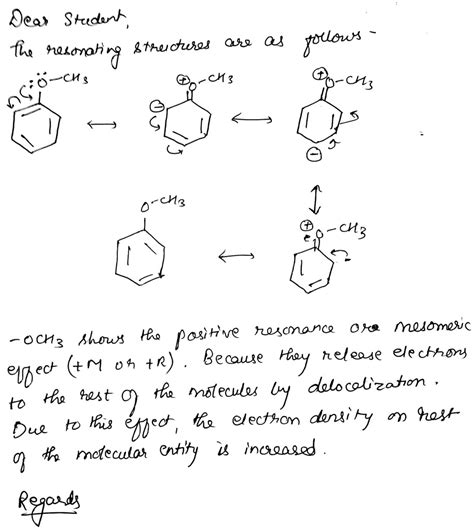 Dear Student,
The resonating structures are as follows -
O-CH3
⊕ O-CH3
⊖
⊕ O-CH3
⊖
O-CH3
⊕ O-CH3
-OCH3 shows the positive resonance ore mesomeric
effect (+M or +R). Because they release electrons
to the rest of the molecules by delocalization.
Due to this effect, the electron density on rest
of the molecular entity is increased.
Regards